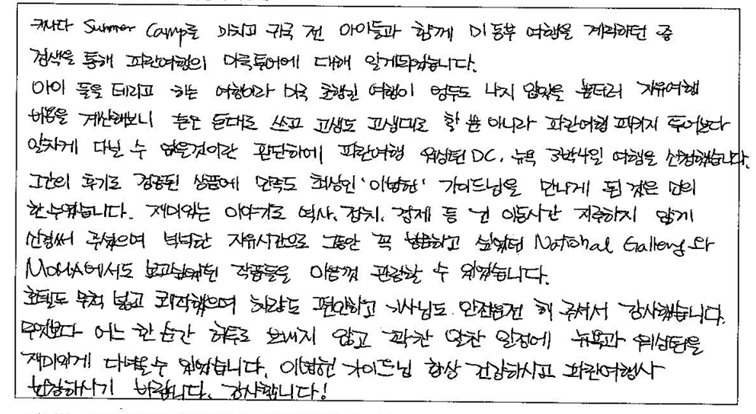 캐나다 Summer Camp를 마치고 귀국 전 아이들과 함께 미동부 여행을 계획하던 중
검색을 통해 파란여행의 미국투어에 대해 알게되었습니다.
아이 들을 데리고 하는 여행이라 미국 초행인 여행이 엄두도 나지 않았을 뿐더러 자유여행
비용을 계산해보니 돈은 돈대로 쓰고 고생도 고생대로 할 뿐 아니라 파란여행 패키지 투어보다
알차게 다닐 수 없을것이란 판단하에 파란여행 워싱턴DC, 뉴욕 3박4일 여행을 신청했습니다.
그간의 후기로 검증된 상품에 만족도 최상인 '이병헌' 가이드님을 만나게 된 것은 신의
한수였습니다. 재미있는 이야기로 역사, 정치, 경제 등 긴 이동시간 지루하지 않게
신경써 주셨으며 넉넉한 자유시간으로 그동안 꼭 방문하고 싶었던 National Gallery와
MoMA에서도 보고싶었던 작품들을 마음껏 관람할 수 있었습니다.
호텔도 무척 넓고 쾌적했으며 차량도 편안하고 기사님도 안전운전 해 주셔서 감사했습니다.
무엇보다 어느 한 순간 허투로 보내지 않고 꽉찬 알찬 일정에 뉴욕과 워싱턴을
재미있게 다녀올 수 있었습니다. 이병헌 가이드님 항상 건강하시고 파란여행사
번창하시기 바랍니다. 감사합니다!